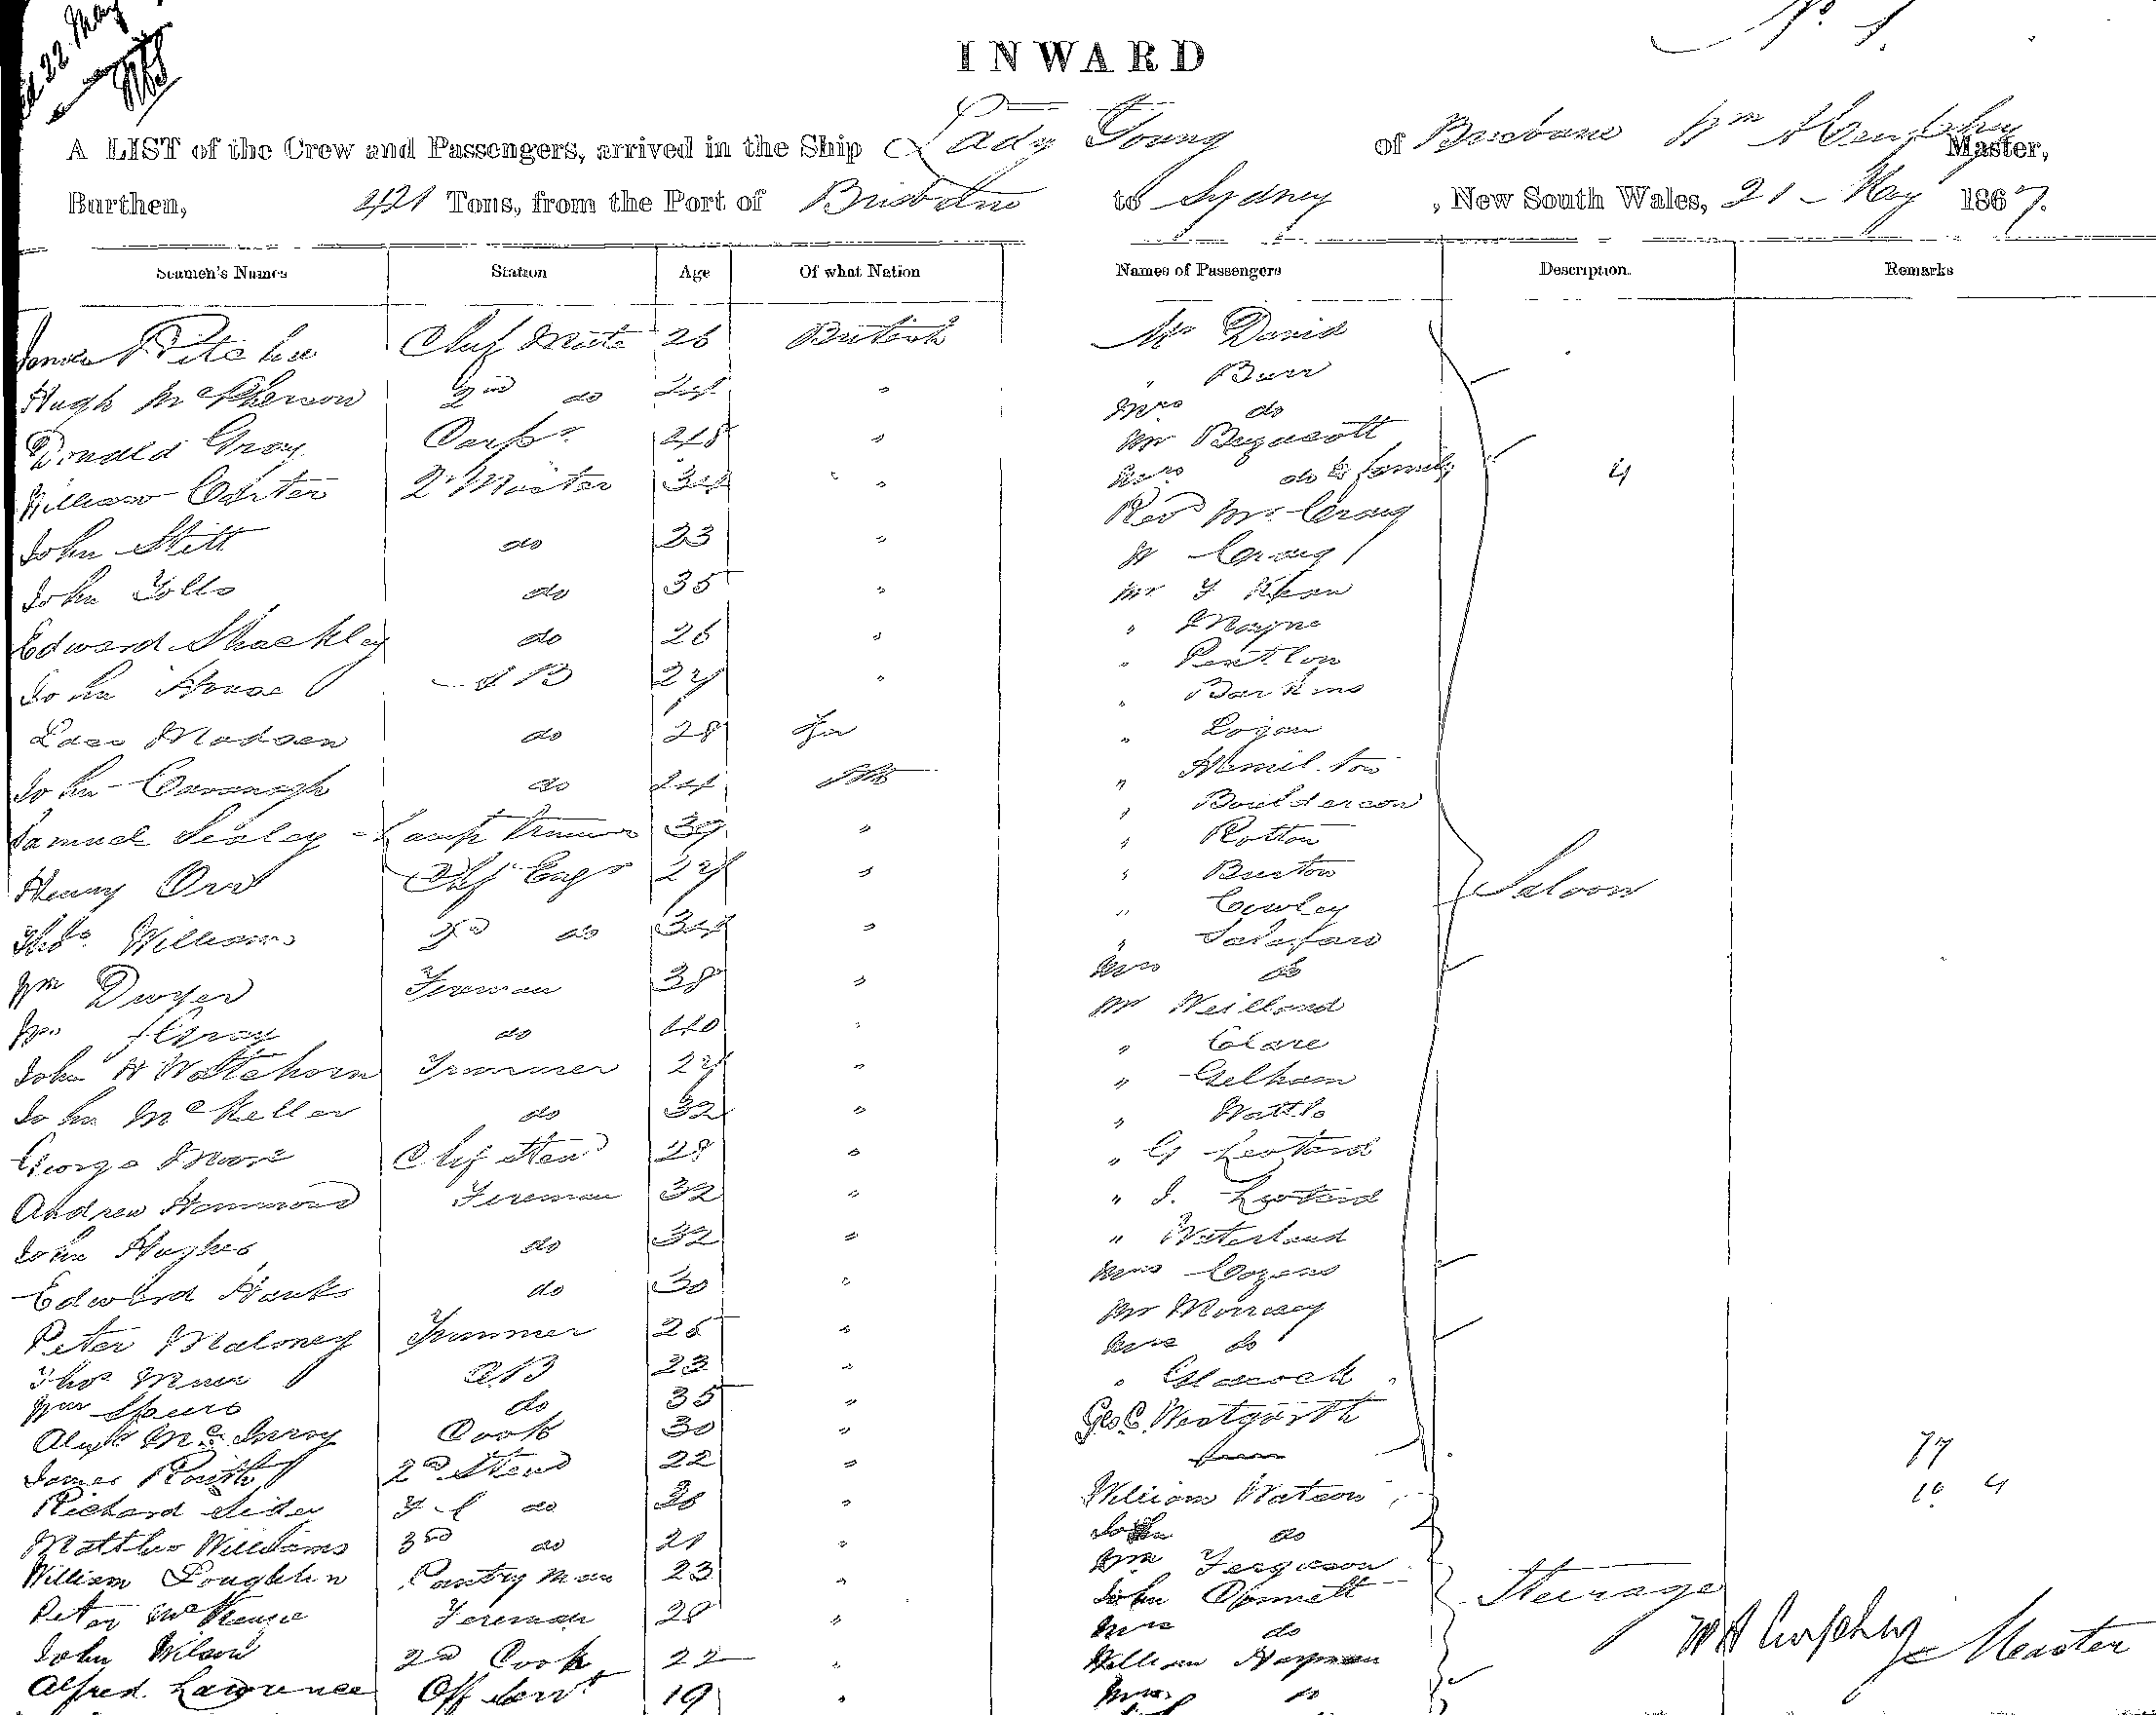 22 May
No. 1.
INWARD
A LIST of the Crew and Passengers, arrived in the Ship Lady Young of Brisbane Wm Master,
Burthen, 421 Tons, from the Port of Brisbane to Sydney, New South Wales, 21 - May 1867.
Seamen's Names Station Age Of what Nation Names of Passengers Description. Remarks
Chief Mate 26 British Mr David
Hugh McPherson 2nd do 24 " " Burr
Donald Gray Carpr 48 " Mrs do
William Carter Qr Master 34 " Mr
Mrs do & family 4
Revd Mr Craig
John Stitt do 23 " Craig
John Tollo do 35 " Mr Khan
Edward Shackley do 26 " " Mayne
John House AB 27 " " Pentlon
" Barkins
Madsen do 28 " Logan
John Cavanagh do 24 " Hamilton
" Boulderson
Samuel Sealey Lamp Trimmer 39 " " Rotton
Henry Orr Chf Engr 27 " " Burton
" Cowley
Thos Williams 2nd do 34 " "
Saloon
Wm Dwyer Fireman 38 " Mrs do
Wm Gray do 40 " Mr Weilland
" Clare
John H Watehorn Trimmer 27 " " Gelham
John McKeller do 32 " " Wattle
George Moore Chif Stewd 28 " " G
Andrew Hammond Fireman 32 " " J.
John Hughes do 32 " " Waterland
Edward Hanks do 30 " Mrs Cozens
Peter Maloney Trimmer 25 " Mr Morrisey
Mrs do
Thos Muir AB 23 " "
Wm Spiers do 35 "
Geo C. Westgarth
Alexr McInroy Cook 30 "
James Routh 2nd Stewd 22 " 77
Richard do 36 " William Watson 10 4
Matthew Williams 3rd do 21 " John do
William Loughlin Pantry man 23 " Wm Ferguson
John
Steerage
Peter McKenzie Fireman 28 " Mrs do
John Wilson 2nd Cook 22 " William Hayman
Master
Alfred Lawrence Off Servt 19 " Mrs do